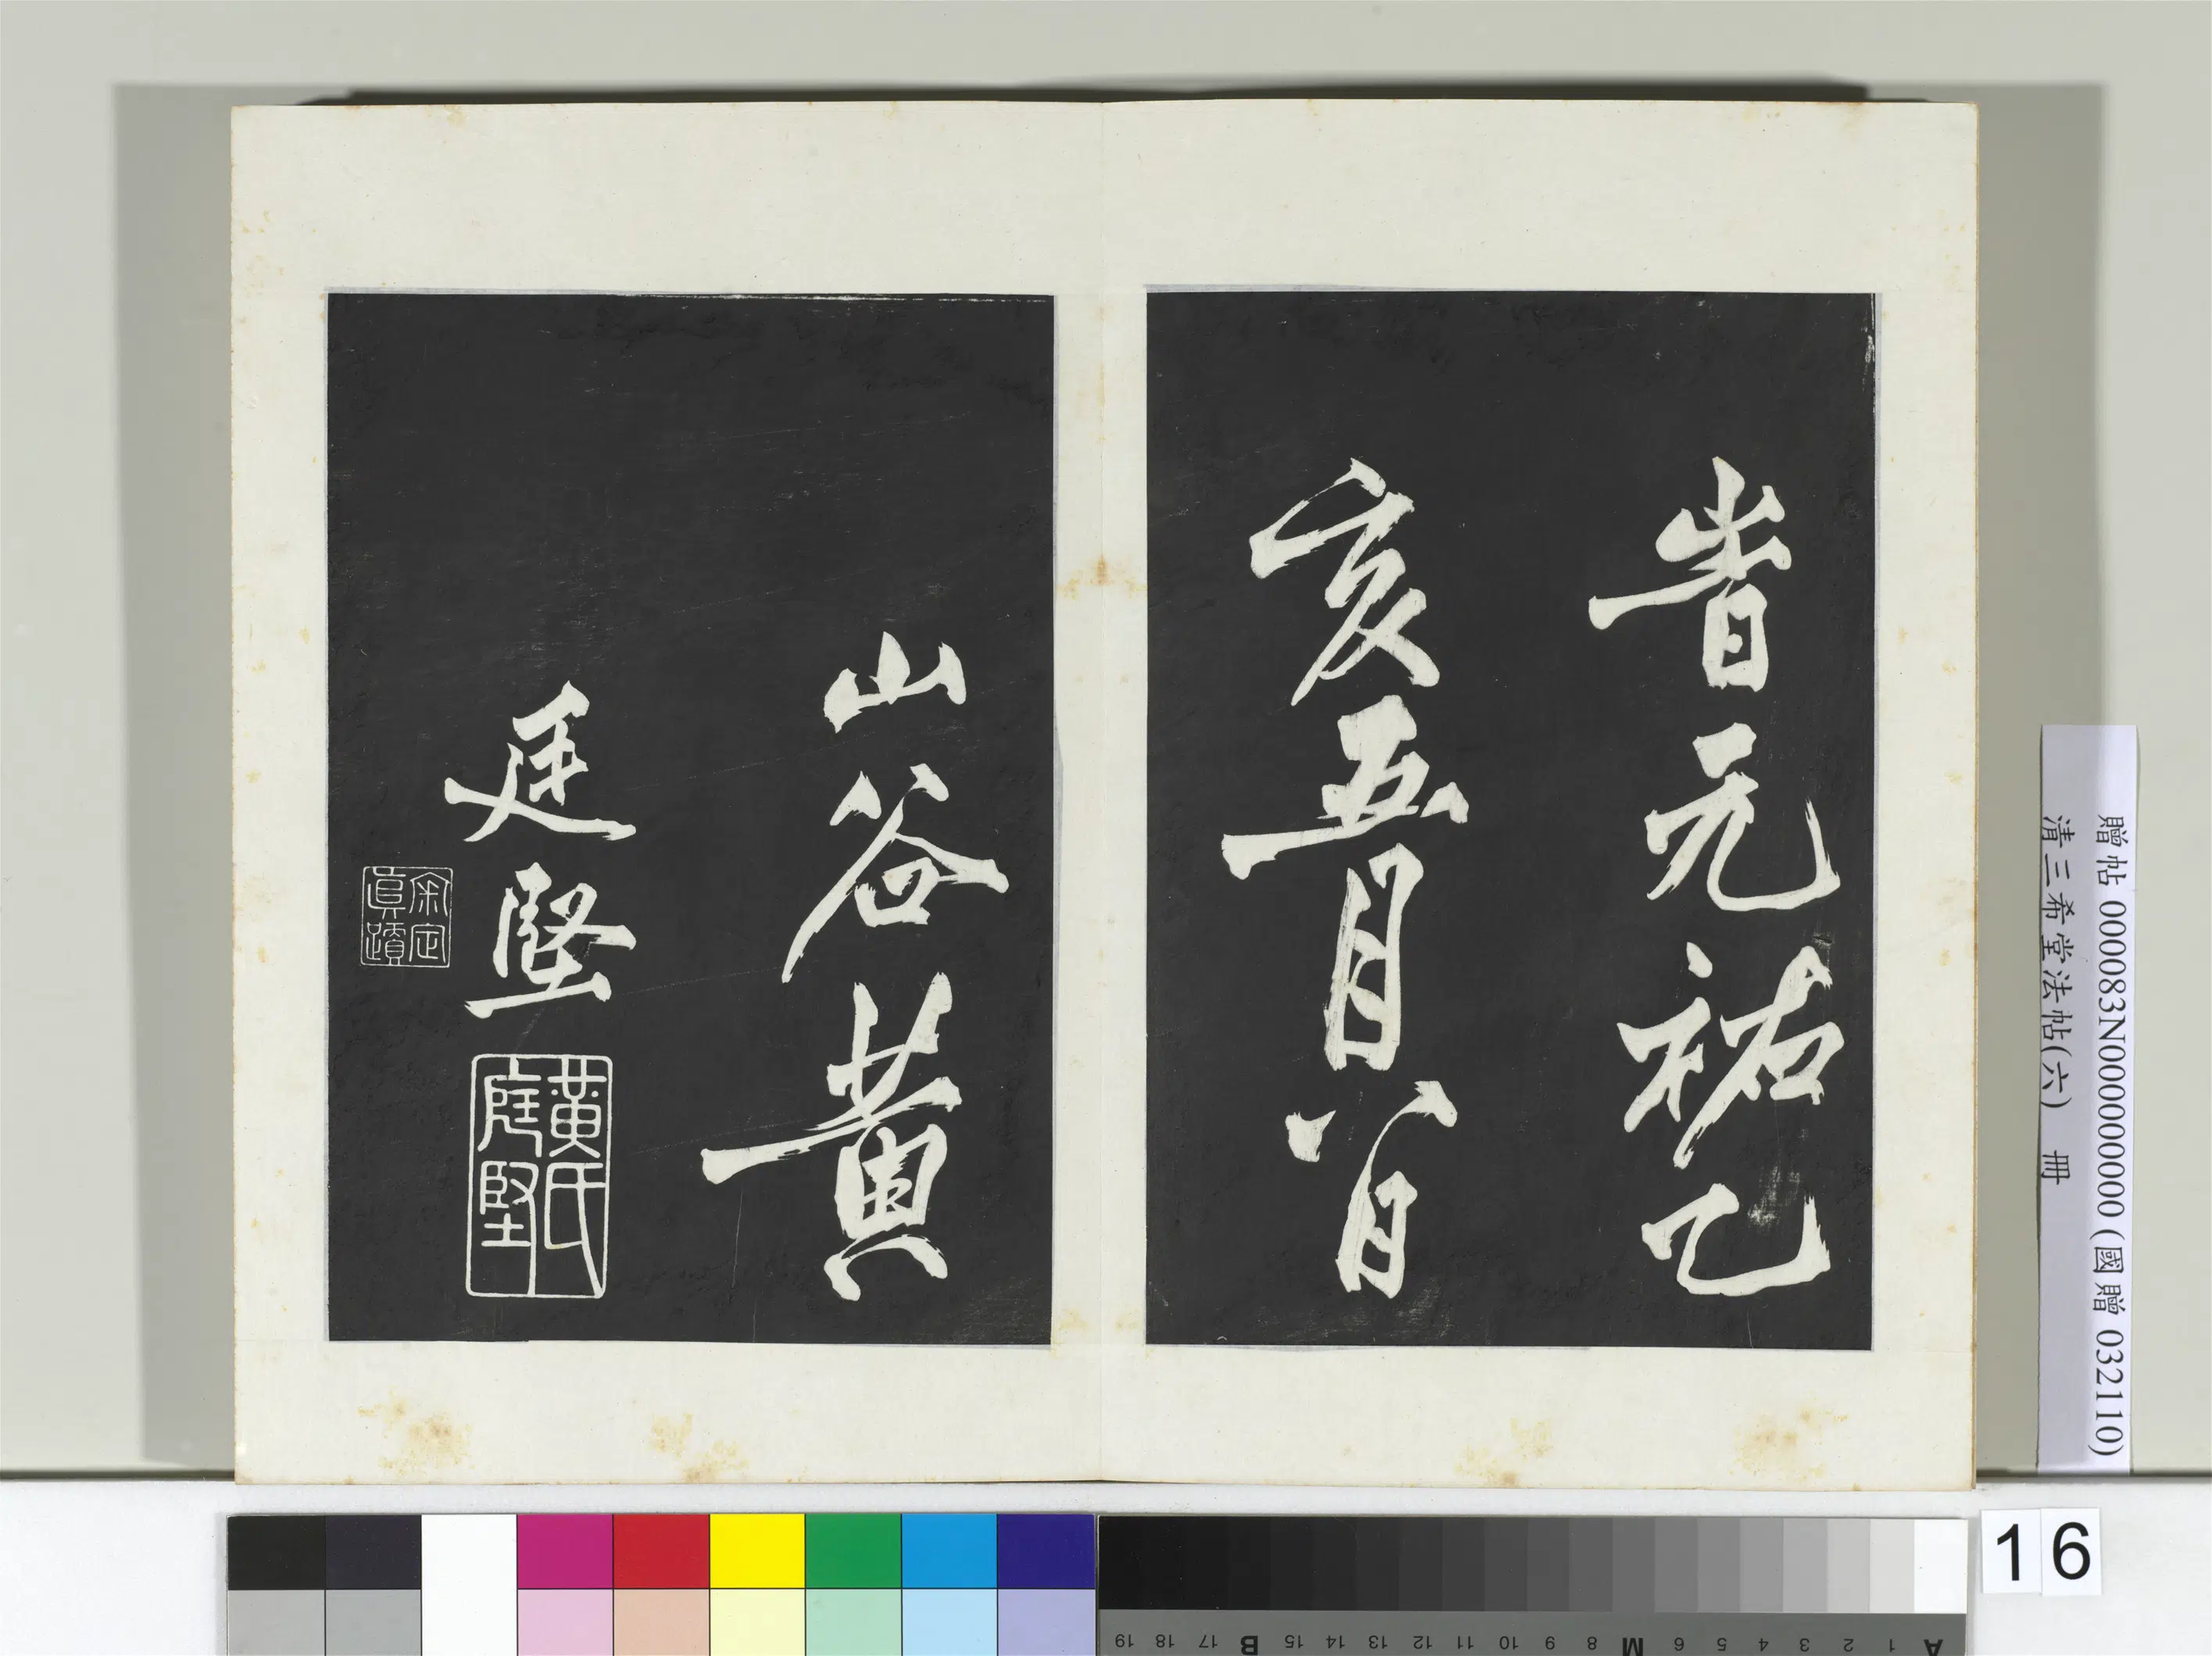 旹元祐乙
亥五月八日
山谷黃
廷堅
黃氏
庭堅
宷定
眞蹟
贈帖 000083N000000000 (國贈 032110)
清三希堂法帖(六) 冊
16
A 1 2 3 4 5 6 M 8 9 10 11 12 13 14 15 B 17 18 19